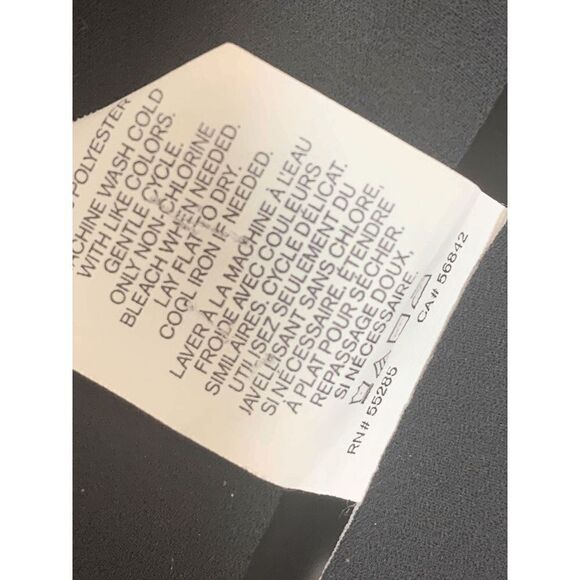 POLYESTER
MACHINE WASH COLD
WITH LIKE COLORS.
GENTLE CYCLE.
ONLY NON-CHLORINE
BLEACH WHEN NEEDED.
LAY FLAT TO DRY.
COOL IRON IF NEEDED.
LAVER À LA MACHINE À L'EAU
FROIDE AVEC COULEURS
SIMILAIRES. CYCLE DÉLICAT.
UTILISEZ SEULEMENT DU
JAVELLISANT SANS CHLORE,
SI NÉCESSAIRE. ÉTENDRE
À PLAT POUR SÉCHER.
REPASSAGE DOUX,
SI NÉCESSAIRE.
RN# 55285 CA# 56842